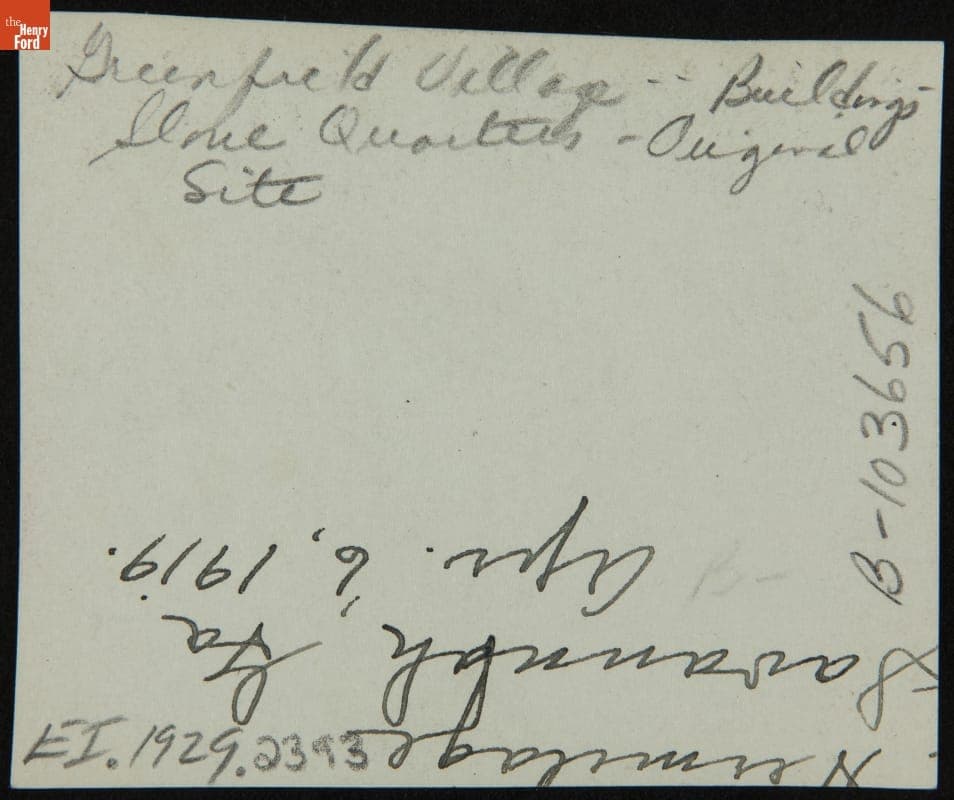 the Henry Ford
Greenfield Village -- Buildings
Slave Quarters - Original
Site
B-103656
Hermitage
Savannah, Ga.
Apr. 6, 1919.
B-
EI.1929.2393